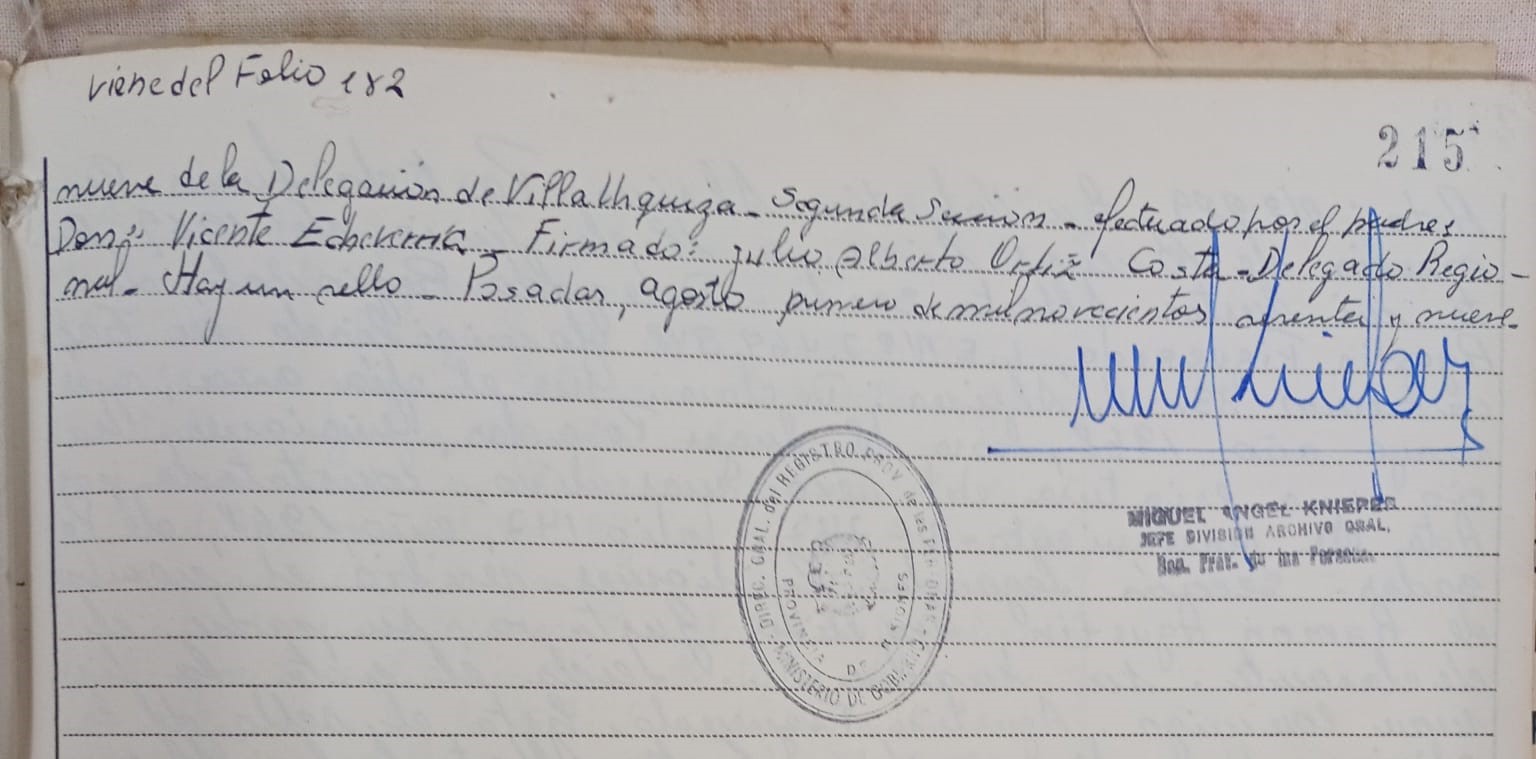 viene del Folio 182
215
nueve de la Delegación de Villa Urquiza - Segunda Sección - efectuado por el padre:
Don: Vicente Echeverría - Firmado: Julio Alberto Ortiz Costa - Delegado Regio-
nal - Hay un sello - Posadas, agosto primero de mil novecientos y nueve
DIREC. GRAL. del REGISTRO PROV. de las PERSONAS
MINISTERIO DE GOBIERNO
PROVINCIA DE MISIONES
MIGUEL ANGEL
JEFE DIVISION ARCHIVO GRAL.
Reg. Prov. de las Personas